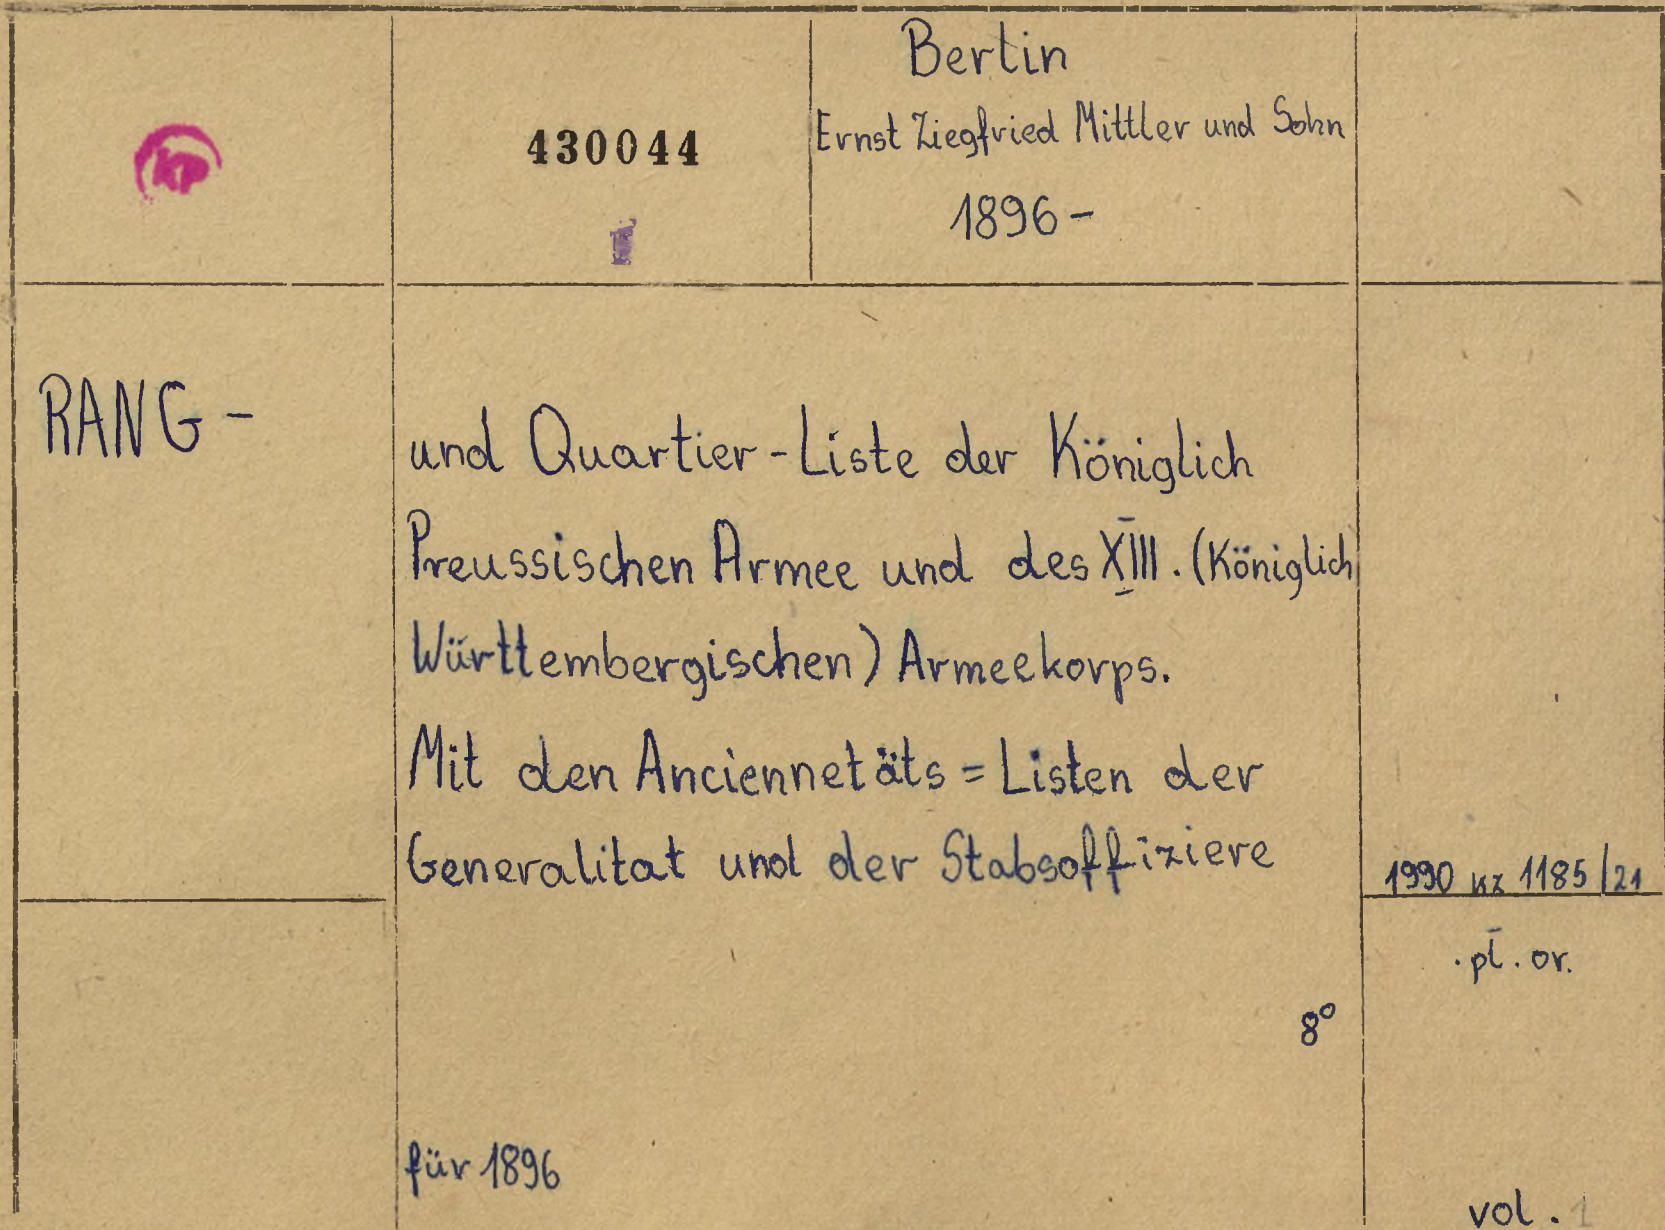 Berlin
Ernst Ziegfried Mittler und Sohn
430044
1896-
I
RANG-
und Quartier-Liste der Königlich
Preussischen Armee und des XIII. (Königlich
Württembergischen) Armeekorps.
Mit den Anciennetäts=Listen der
Generalitat und der Stabsoffiziere
1990 kz 1185/21
pł. or.
8°
für 1896
vol. 1